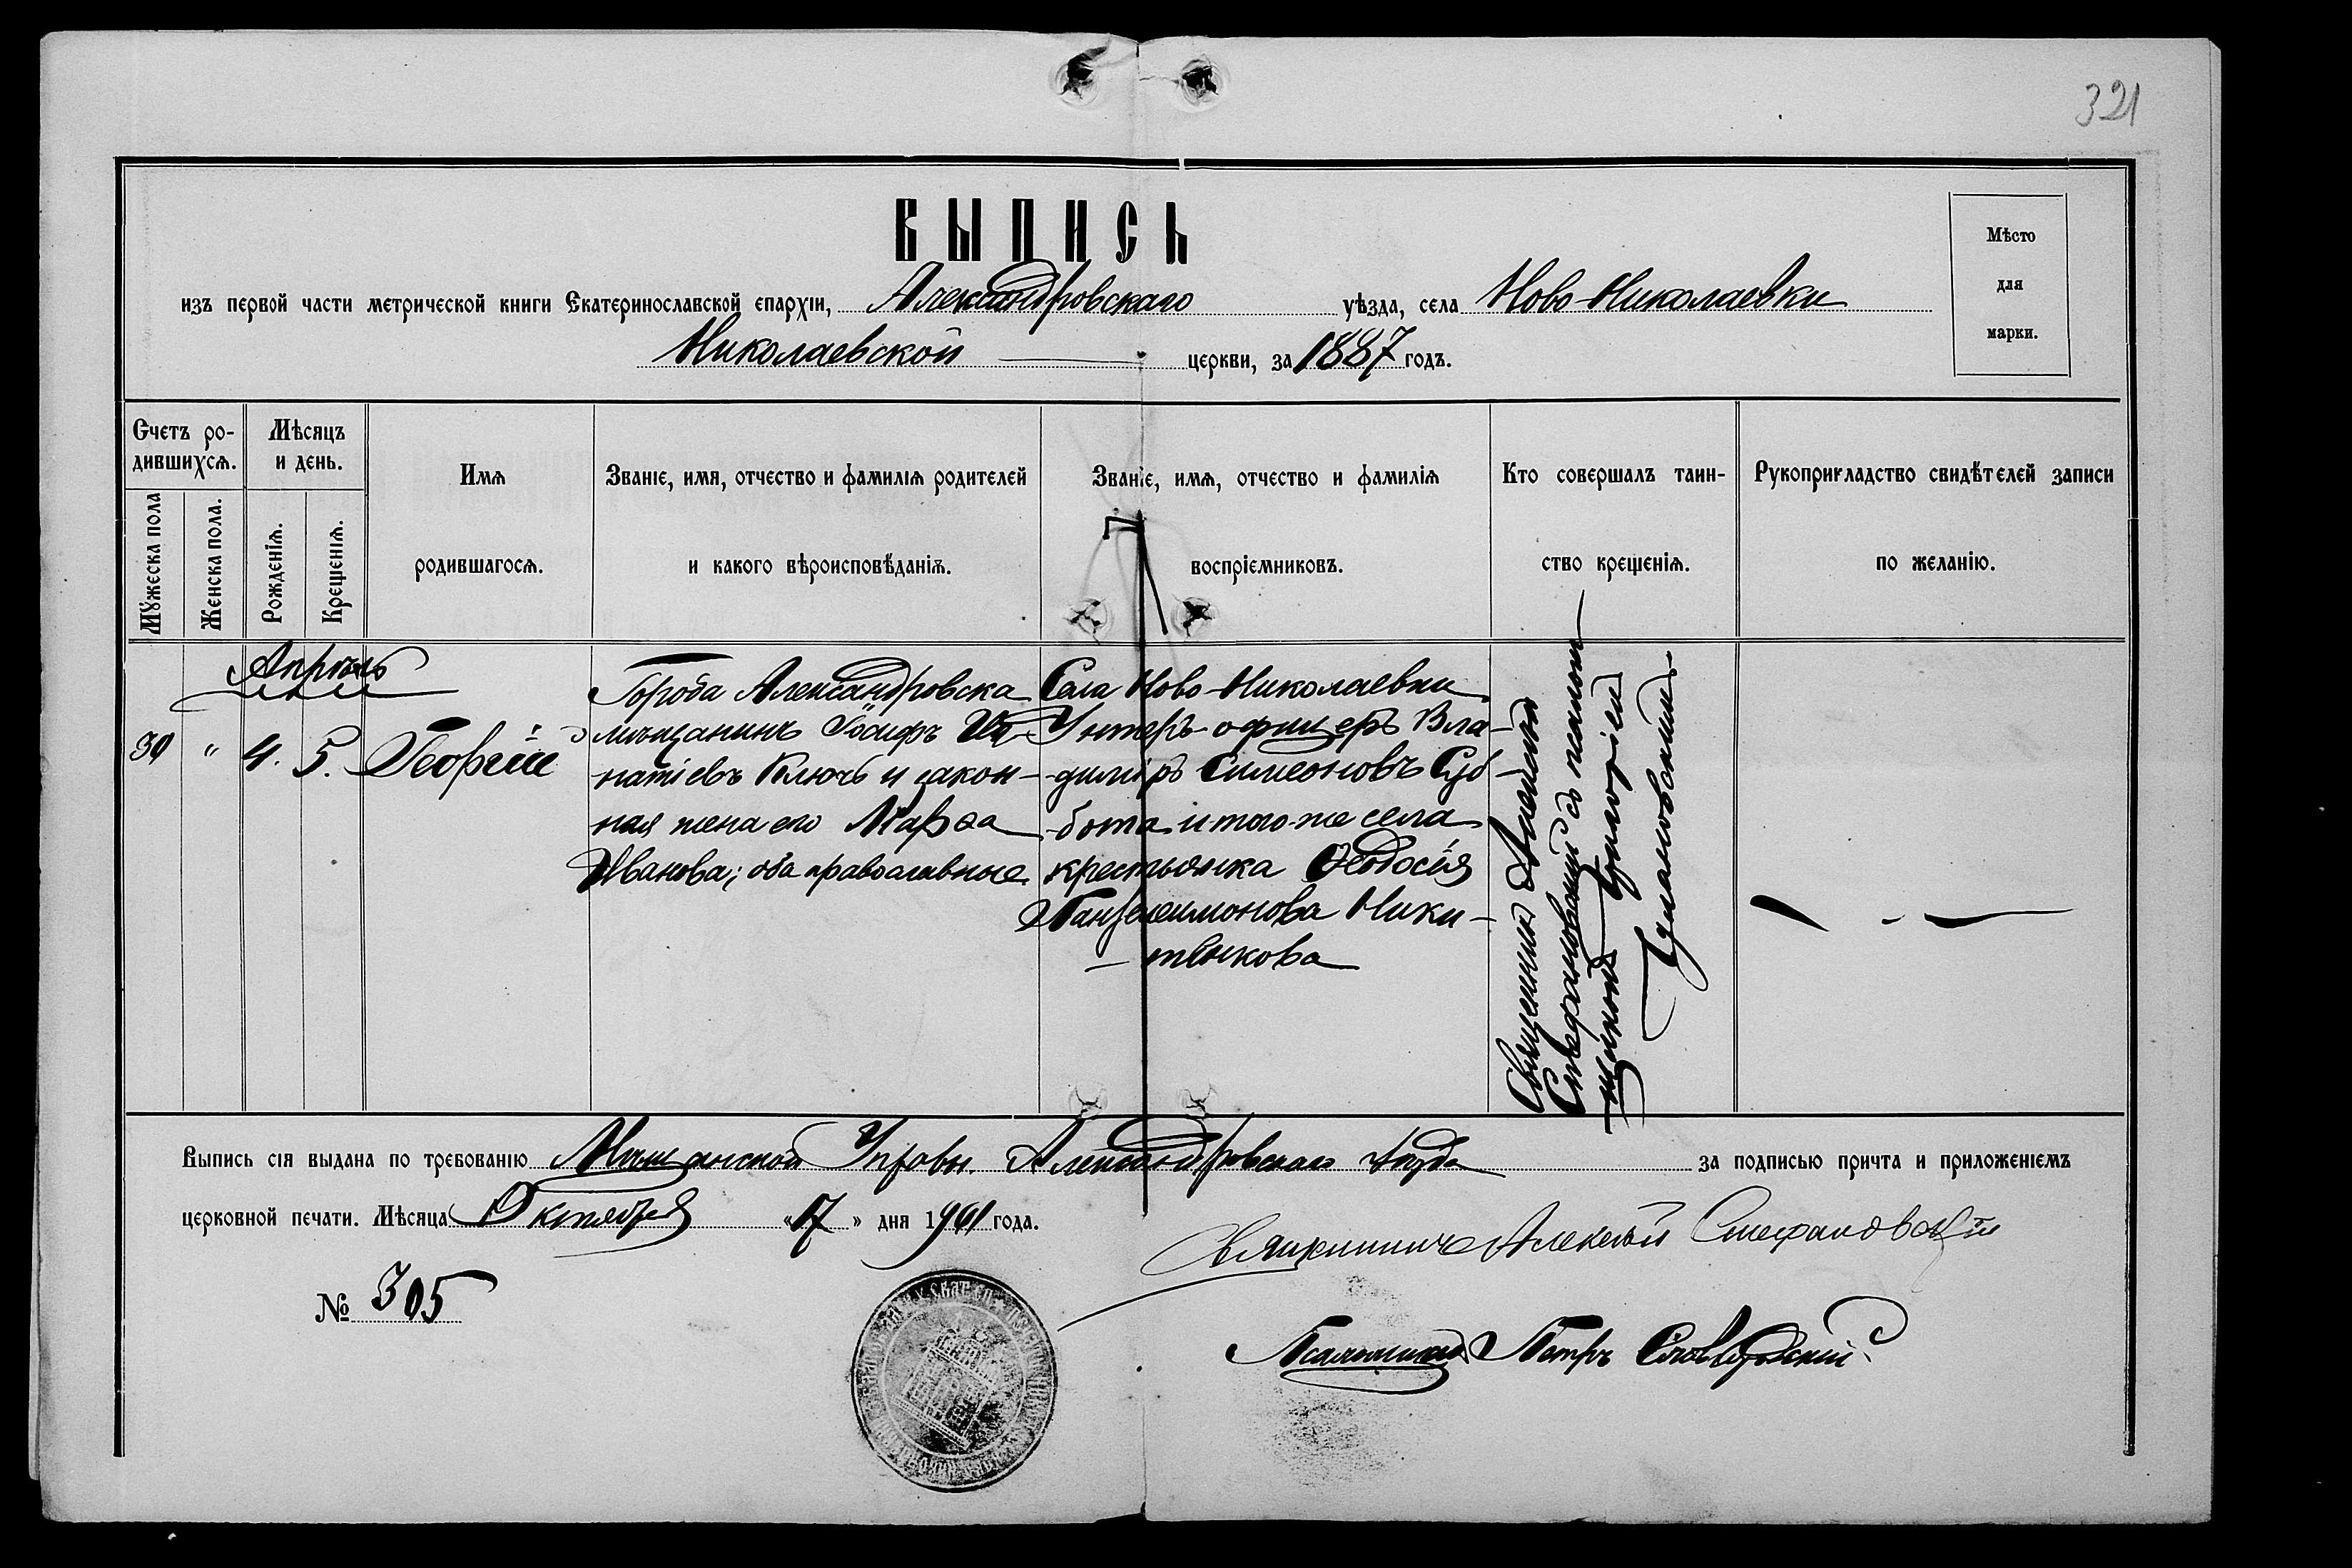 321
ВЫПИСЬ
Мѣсто
для
марки.
изъ первой части метрической книги Екатеринославской епархіи, Александровскаго уѣзда, села Ново-Николаевки
Николаевской церкви, за 1887 годъ.
Счетъ ро-
дившихся.
Мужеска пола
Женска пола.
Мѣсяцъ
и день.
Рожденія.
Крещенія.
Имя
родившагося.
Званіе, имя, отчество и фамилія родителей
и какого вѣроисповѣданія.
Званіе, имя, отчество и фамилія
воспріемниковъ.
Кто совершалъ таин-
ство крещенія.
Рукоприкладство свидѣтелей записи
по желанію.
Апрѣль
30 " 4. 5. Георгій
Города Александровска
мѣщанинъ Іосифъ Иг-
натіевъ Ключъ и закон-
ная жена его Марѳа
Иванова; оба православные.
Села Ново-Николаевки
Унтеръ-офицеръ Вла-
димиръ Симеоновъ Суб-
бота и того-же села
крестьянка Ѳеодосія
Пантелеимонова Ники-
тенкова
Священникъ Алексій
Стефановскій съ псаломи-
щикомъ Григоріемъ
Выпись сія выдана по требованію Мѣщанской Управы Александровскаго уѣзда за подписью причта и приложеніемъ
церковной печати. Мѣсяца Октября «17» дня 1901 года.
Священникъ Алексій Стефановскій
№ 305
Псаломщикъ Петръ